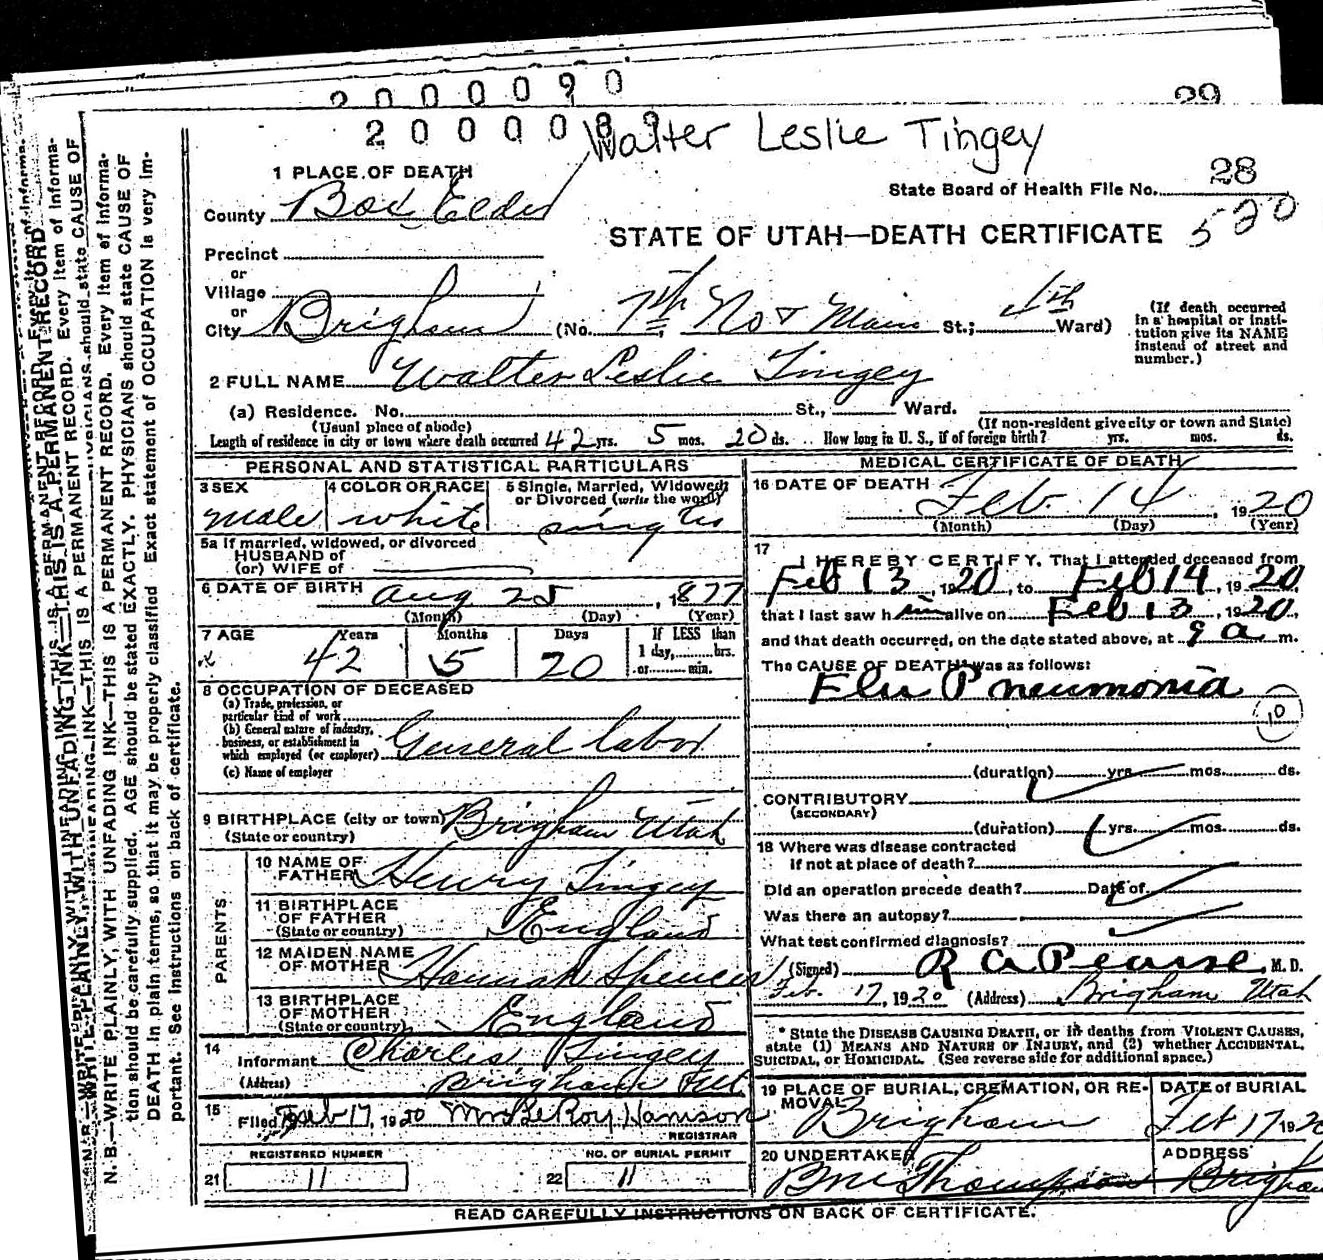 2000090
29
200008
Walter Leslie Tingey
1 PLACE OF DEATH
28
State Board of Health File No.
520
County Box Elder
STATE OF UTAH—DEATH CERTIFICATE
Precinct
or
Village
or
City Brigham (No. 7th No & Main St.; 4th Ward)
(If death occurred in a hospital or institution give its NAME instead of street and number.)
2 FULL NAME Walter Leslie Tingey
(a) Residence. No. St., Ward.
(Usual place of abode) (If non-resident give city or town and State)
Length of residence in city or town where death occurred 42 yrs. 5 mos. 20 ds. How long in U. S., if of foreign birth? yrs. mos. ds.
PERSONAL AND STATISTICAL PARTICULARS
3 SEX 4 COLOR OR RACE 5 Single, Married, Widowed, or Divorced (write the word)
male white single
5a If married, widowed, or divorced
HUSBAND of
(or) WIFE of
6 DATE OF BIRTH Aug 25, 1877
(Month) (Day) (Year)
7 AGE Years Months Days If LESS than
42 5 20 1 day, hrs.
or min.
8 OCCUPATION OF DECEASED
(a) Trade, profession, or
particular kind of work
(b) General nature of industry,
business, or establishment in
which employed (or employer) General labor
(c) Name of employer
9 BIRTHPLACE (city or town) Brigham Utah
(State or country)
PARENTS
10 NAME OF FATHER Henry Tingey
11 BIRTHPLACE OF FATHER England
(State or country)
12 MAIDEN NAME OF MOTHER Hannah Spencer
13 BIRTHPLACE OF MOTHER England
(State or country)
14
Informant Charles Tingey
(Address) Brigham Ut
15
Filed Feb 17, 1920 Mrs LeRoy Hamson
REGISTRAR
REGISTERED NUMBER NO. OF BURIAL PERMIT
21 11 22 11
MEDICAL CERTIFICATE OF DEATH
16 DATE OF DEATH Feb. 14, 1920
(Month) (Day) (Year)
17
I HEREBY CERTIFY, That I attended deceased from
Feb 13 1920, to Feb 14, 1920,
that I last saw him alive on Feb 13, 1920,
and that death occurred, on the date stated above, at 9 a m.
The CAUSE OF DEATH* was as follows:
Flu Pneumonia
10
(duration) yrs. mos. ds.
CONTRIBUTORY
(SECONDARY)
(duration) yrs. mos. ds.
18 Where was disease contracted
if not at place of death?
Did an operation precede death? Date of
Was there an autopsy?
What test confirmed diagnosis?
(Signed) R A Pearse, M. D.
Feb. 17, 1920 (Address) Brigham Utah
* State the DISEASE CAUSING DEATH, or in deaths from VIOLENT CAUSES,
state (1) MEANS AND NATURE OF INJURY, and (2) whether ACCIDENTAL,
SUICIDAL, or HOMICIDAL. (See reverse side for additional space.)
19 PLACE OF BURIAL, CREMATION, OR REMOVAL DATE of BURIAL
Brigham Feb 17 1920
20 UNDERTAKER ADDRESS
Thompson Brigham
READ CAREFULLY INSTRUCTIONS ON BACK OF CERTIFICATE.
N. B.—WRITE PLAINLY, WITH UNFADING INK—THIS IS A PERMANENT RECORD. Every item of informa-
tion should be carefully supplied. AGE should be stated EXACTLY. PHYSICIANS should state CAUSE OF
DEATH in plain terms, so that it may be properly classified. Exact statement of OCCUPATION is very im-
portant. See instructions on back of certificate.